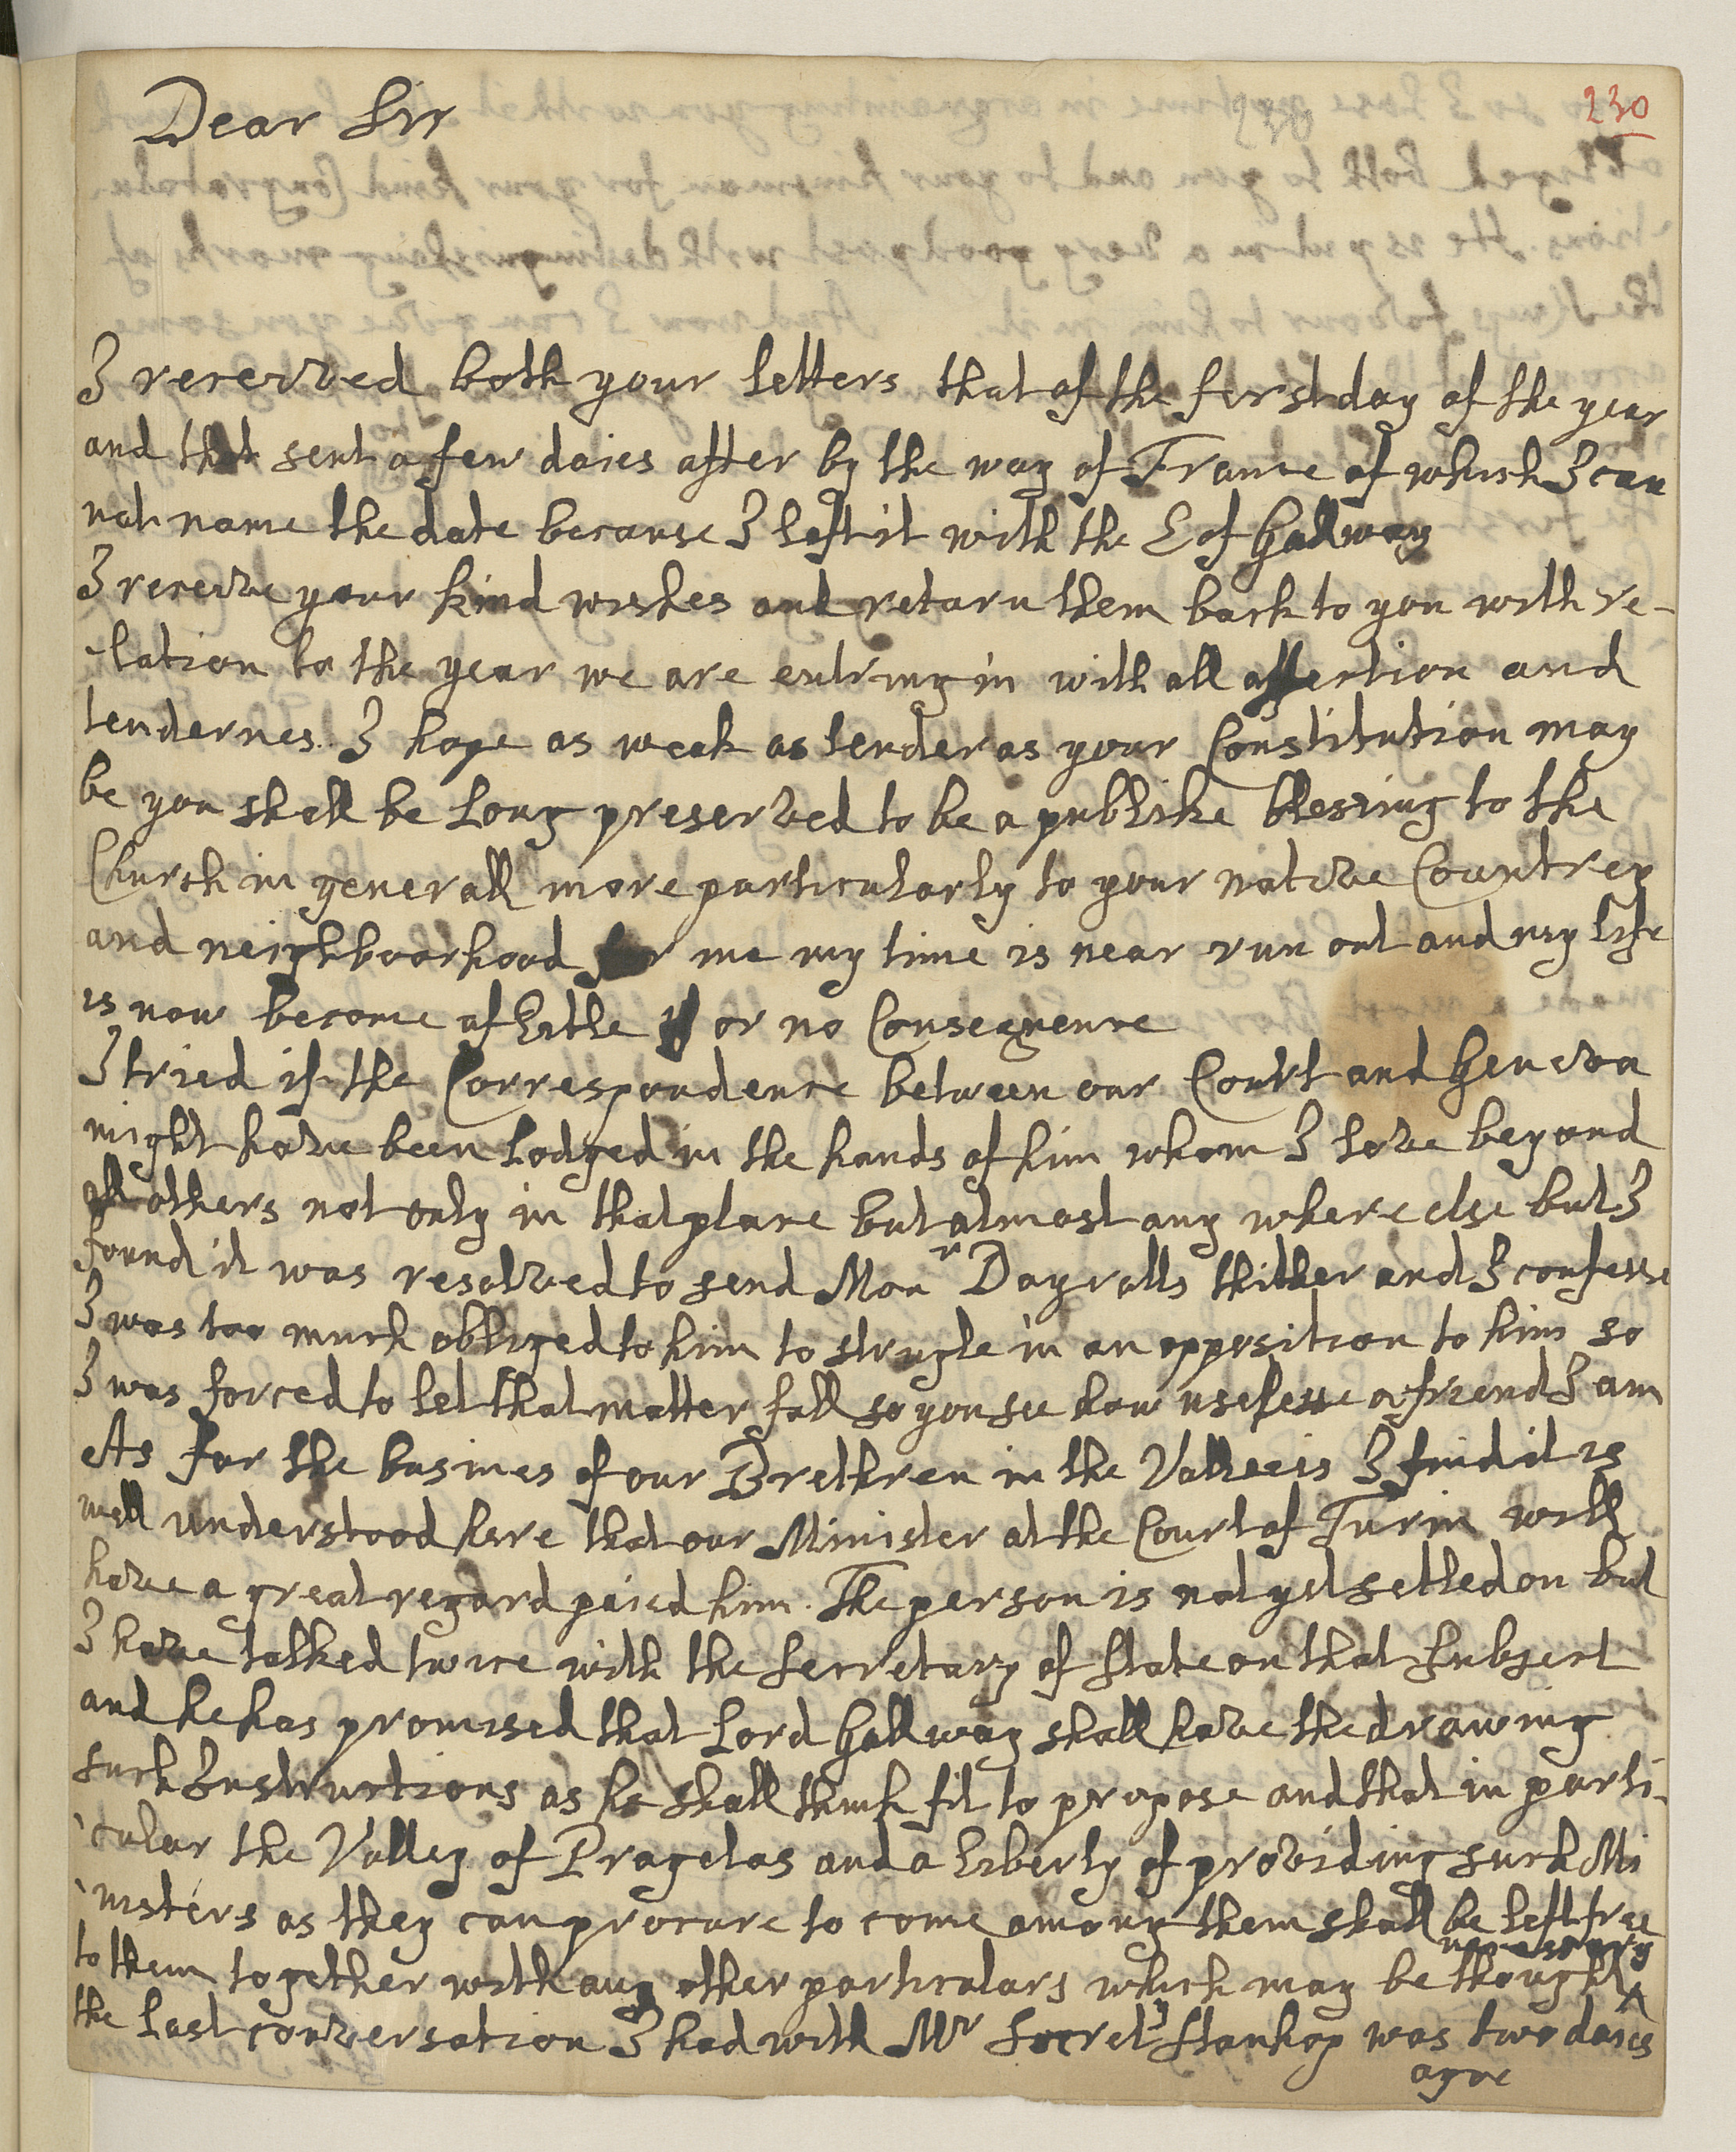 230
Dear Sir
I received both your letters that of the first day of the year
and that sent a few daies after by the way of France of which I can
not name the date because I left it with the E of Gallway
I receive your kind wishes and return them back to you with re-
-lation to the year we are entring in with all affection and
tendernes. I hope as weak as tender as your Constitution may
be you shall be long preserved to be a publike blessing to the
Church in generall more particularly to your native Countrey
and neighbourhood for me my time is near run out and my life
is now become of litle or no Consequence
I tried if the Correspondence between our Court and Geneva
might have been lodged in the hands of him whom I love beyond
all others not only in that place but almost any where else but I
found it was resolved to send Monr Dayrolls thither and I confesse
I was too much obliged to him to strugle in an opposition to him so
I was forced to let that matter fall so you see how uselesse a friend I am
As for the busines of our Brethren in the Vallieis I find it is
well understood here that our Minister at the Court of Turin will
have a great regard paied him. The person is not yet setled on but
I have talked twice with the Secretary of State on that Subject
and he has promised that Lord Gallway shall have the drawing
such Instructions as he shall think fit to propose and that in parti-
-cular the Valley of Pragelas and a liberty of providing such Mi
-nisters as they can procure to come among them shall be left free
to them together with any other particulars which may be thought ^ necessary
the last conversation I had with Mr Secrety Stanhop was two daies
agoe